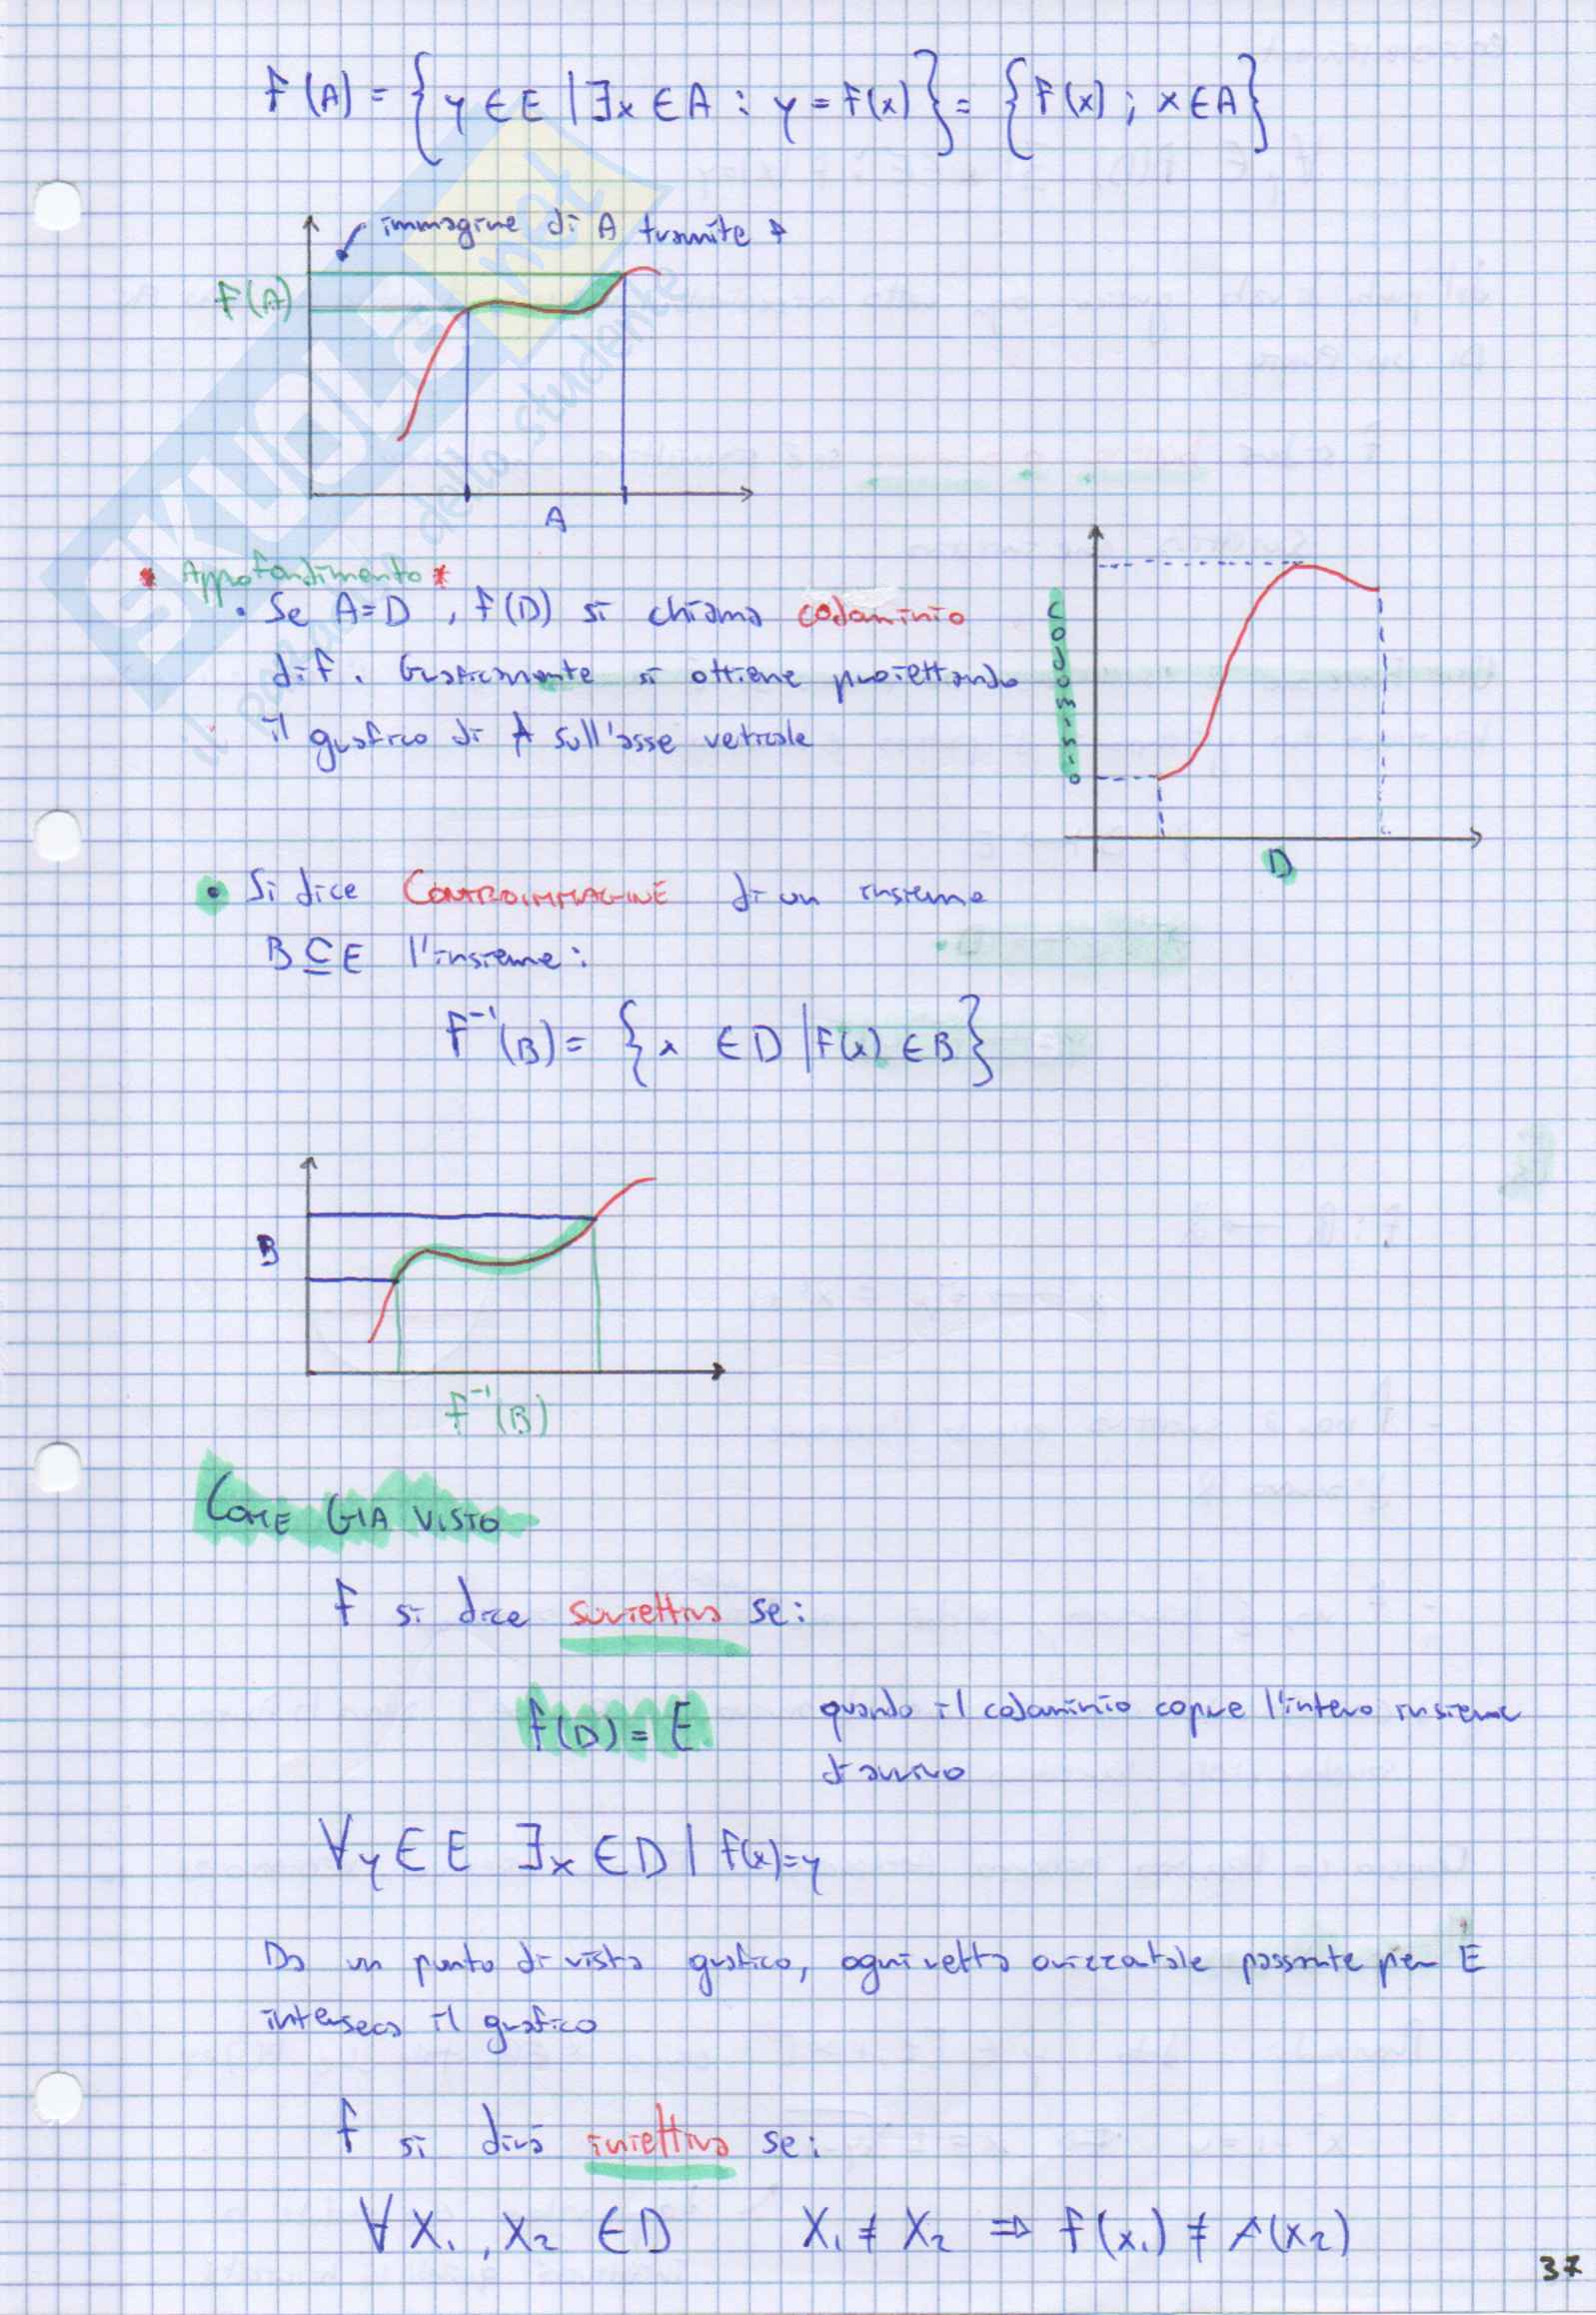 f(A) = {y ∈ E | ∃x ∈ A : y = f(x)} = {f(x) ; x ∈ A}
immagine di A tramite f
f(A)
A
* Approfondimento *
• Se A=D , f(D) si chiama codominio
di f. Graficamente si ottiene proiettando
il grafico di f sull'asse veticale
CODOMINIO
D
• Si dice CONTROIMMAGINE di un insieme
B ⊆ E l'insieme:
f⁻¹(B) = {x ∈ D | f(x) ∈ B}
B
f⁻¹(B)
COME GIA VISTO
f si dice suriettiva se:
f(D) = E quando il codominio copre l'intero insieme
di arrivo
∀y ∈ E ∃x ∈ D | f(x)=y
Da un punto di vista grafico, ogni retta orizzontale passante per E
interseca il grafico
f si dirà iniettiva se:
∀ x₁, x₂ ∈ D x₁ ≠ x₂ ⇒ f(x₁) ≠ f(x₂)
37
SKUOLA.net
il paradiso dello studente